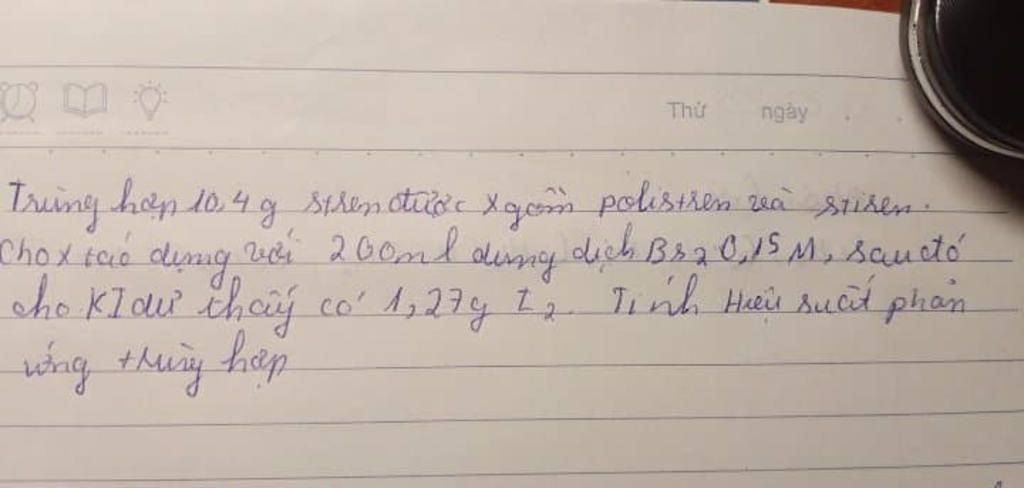 Thứ ngày
Trùng hợp 10,4 g stiren được X gồm polistiren và stiren.
Cho X tác dụng với 200ml dung dịch Br2 0,15M, sau đó
cho KI dư thấy có 1,27g I2. Tính Hiệu suất phản
ứng trùng hợp